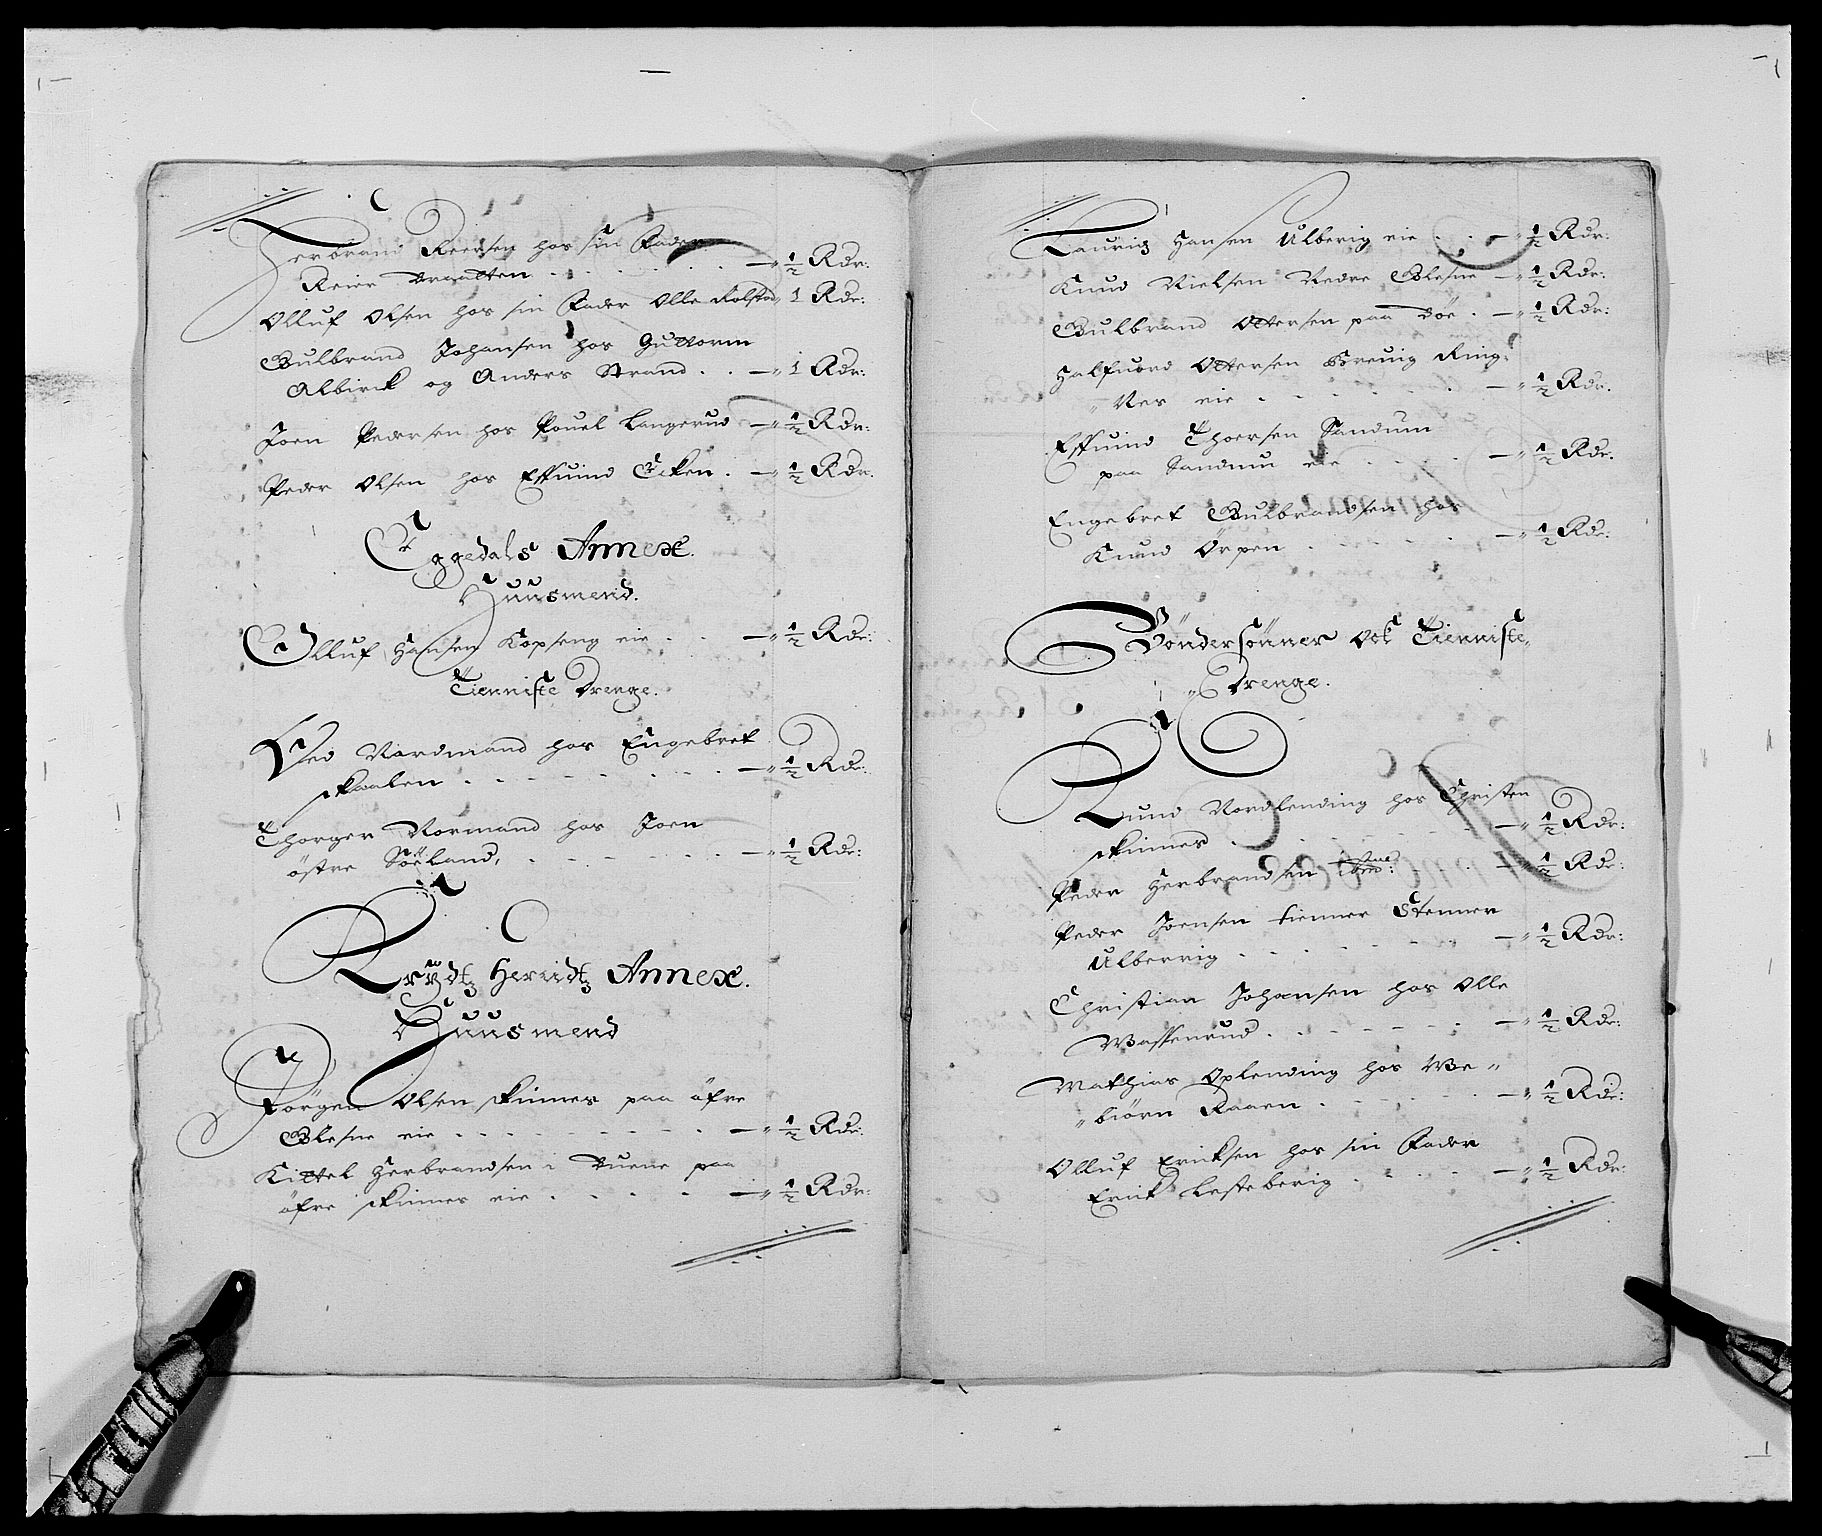 Herbrand Reersen hos sin Fader
Reier Braatten . . . . . . . — „ ½ Rdr:
Olluf Olsen hos sin Fader Olle Rolstad „ 1 Rdr:
Gulbrand Johansen hos Guttorm
Albirck og Anders Strand . . — „ 1 Rdr:
Joen Pedersen hos Pouel Langerud — „ ½ Rdr:
Peder Olsen hos Effuind Ecken . — „ ½ Rdr.
Eggedals Annex.
Huusmend.
Olluf Hansen Kopseng eie . . . — „ ½ Rdr:
Tienniste Drenge.
Nordmand hos Engebret
Skaalen . . . . . . . . — „ ½ Rdr:
Thorger Normand hos Joen
östre Söeland, . . . . . . — „ ½ Rdr:
Krydtz Herridtz Annex.
Huusmend
Jörgen Olsen Skinnes paa öfre
Glesne eie . . . . . . . . — „ ½ Rdr:
Kittel Herbrandsen i Buene paa
öfre Skinnes eie . . . . . — „ ½ Rdr:
Lauritz Hansen Ulberig eie . . — „ ½ Rdr:
Knud Nielsen Nedre Glesne — „ ½ Rdr:
Gulbrand Ottersen paa Böe . — „ ½ Rdr:
Halfuord Ottersen Greuig Ring„
„Nes eie . . . . . . — „ ½ Rdr.
Effuind Thoersen Sandum
paa Sandum eie . . . . — „ ½ Rdr.
Engebret Gulbrandsen hos
Knud Örpen . . . . . . — „ ½ Rdr:
Böndersönner och Tienniste„
„Drenge.
Knud Nordlending hos Christen
Skinnes . . . . . . . — „ ½ Rdr:
Peder Herbrandsen ibm: . . — „ ½ Rdr:
Peder Joensen tienner Stenner
Ulberrig . . . . . . . — „ ½ Rdr:
Christian Johansen hos Olle
Wassenrud . . . . . . . — „ ½ Rdr:
Mathias Oplending hos We„
„biörn Raaen . . . . . . — „ ½ Rdr:
Olluf Ericksen hos sin Fader
Erick Lesteberig . . . . — „ ½ Rdr: